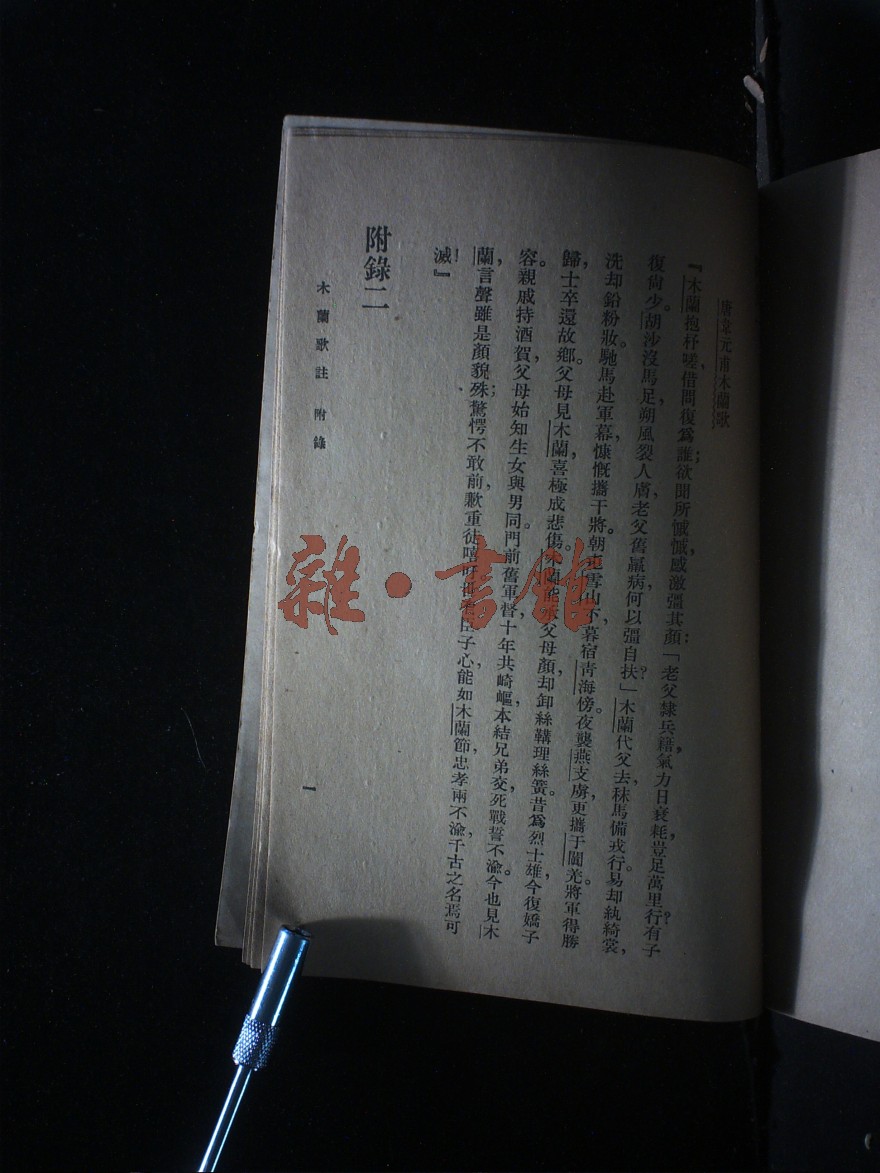 唐韋元甫木蘭歌
『木蘭抱杼嗟，借問復爲誰；欲聞所慽慽，感激彊其顏：「老父隸兵籍，氣力日衰耗，豈足萬里行？有子
復尙少。胡沙沒馬足，朔風裂人膚，老父舊羸病，何以彊自扶？」木蘭代父去，秣馬備戎行，易却紈綺裳，
洗却鉛粉妝。馳馬赴軍幕，慷慨攜干將。朝屯雪山下，暮宿靑海傍。夜襲燕支虜，更攜于闐羌。將軍得勝
歸，士卒還故鄕。父母見木蘭，喜極成悲傷。木蘭能承父母顏，却卸絲鞲理絲簧。昔爲烈士雄，今復嬌子
容。親戚持酒賀，父母始知生女與男同。門前舊軍督，十年共崎嶇，本結兄弟交，死戰誓不渝。今也見木
蘭，言聲雖是顏貌殊；驚愕不敢前，歎重徒嘻吁。世有臣子心，能如木蘭節，忠孝兩不渝，千古之名焉可
滅！』
附錄二
木蘭歌註 附錄
一
雜·書館